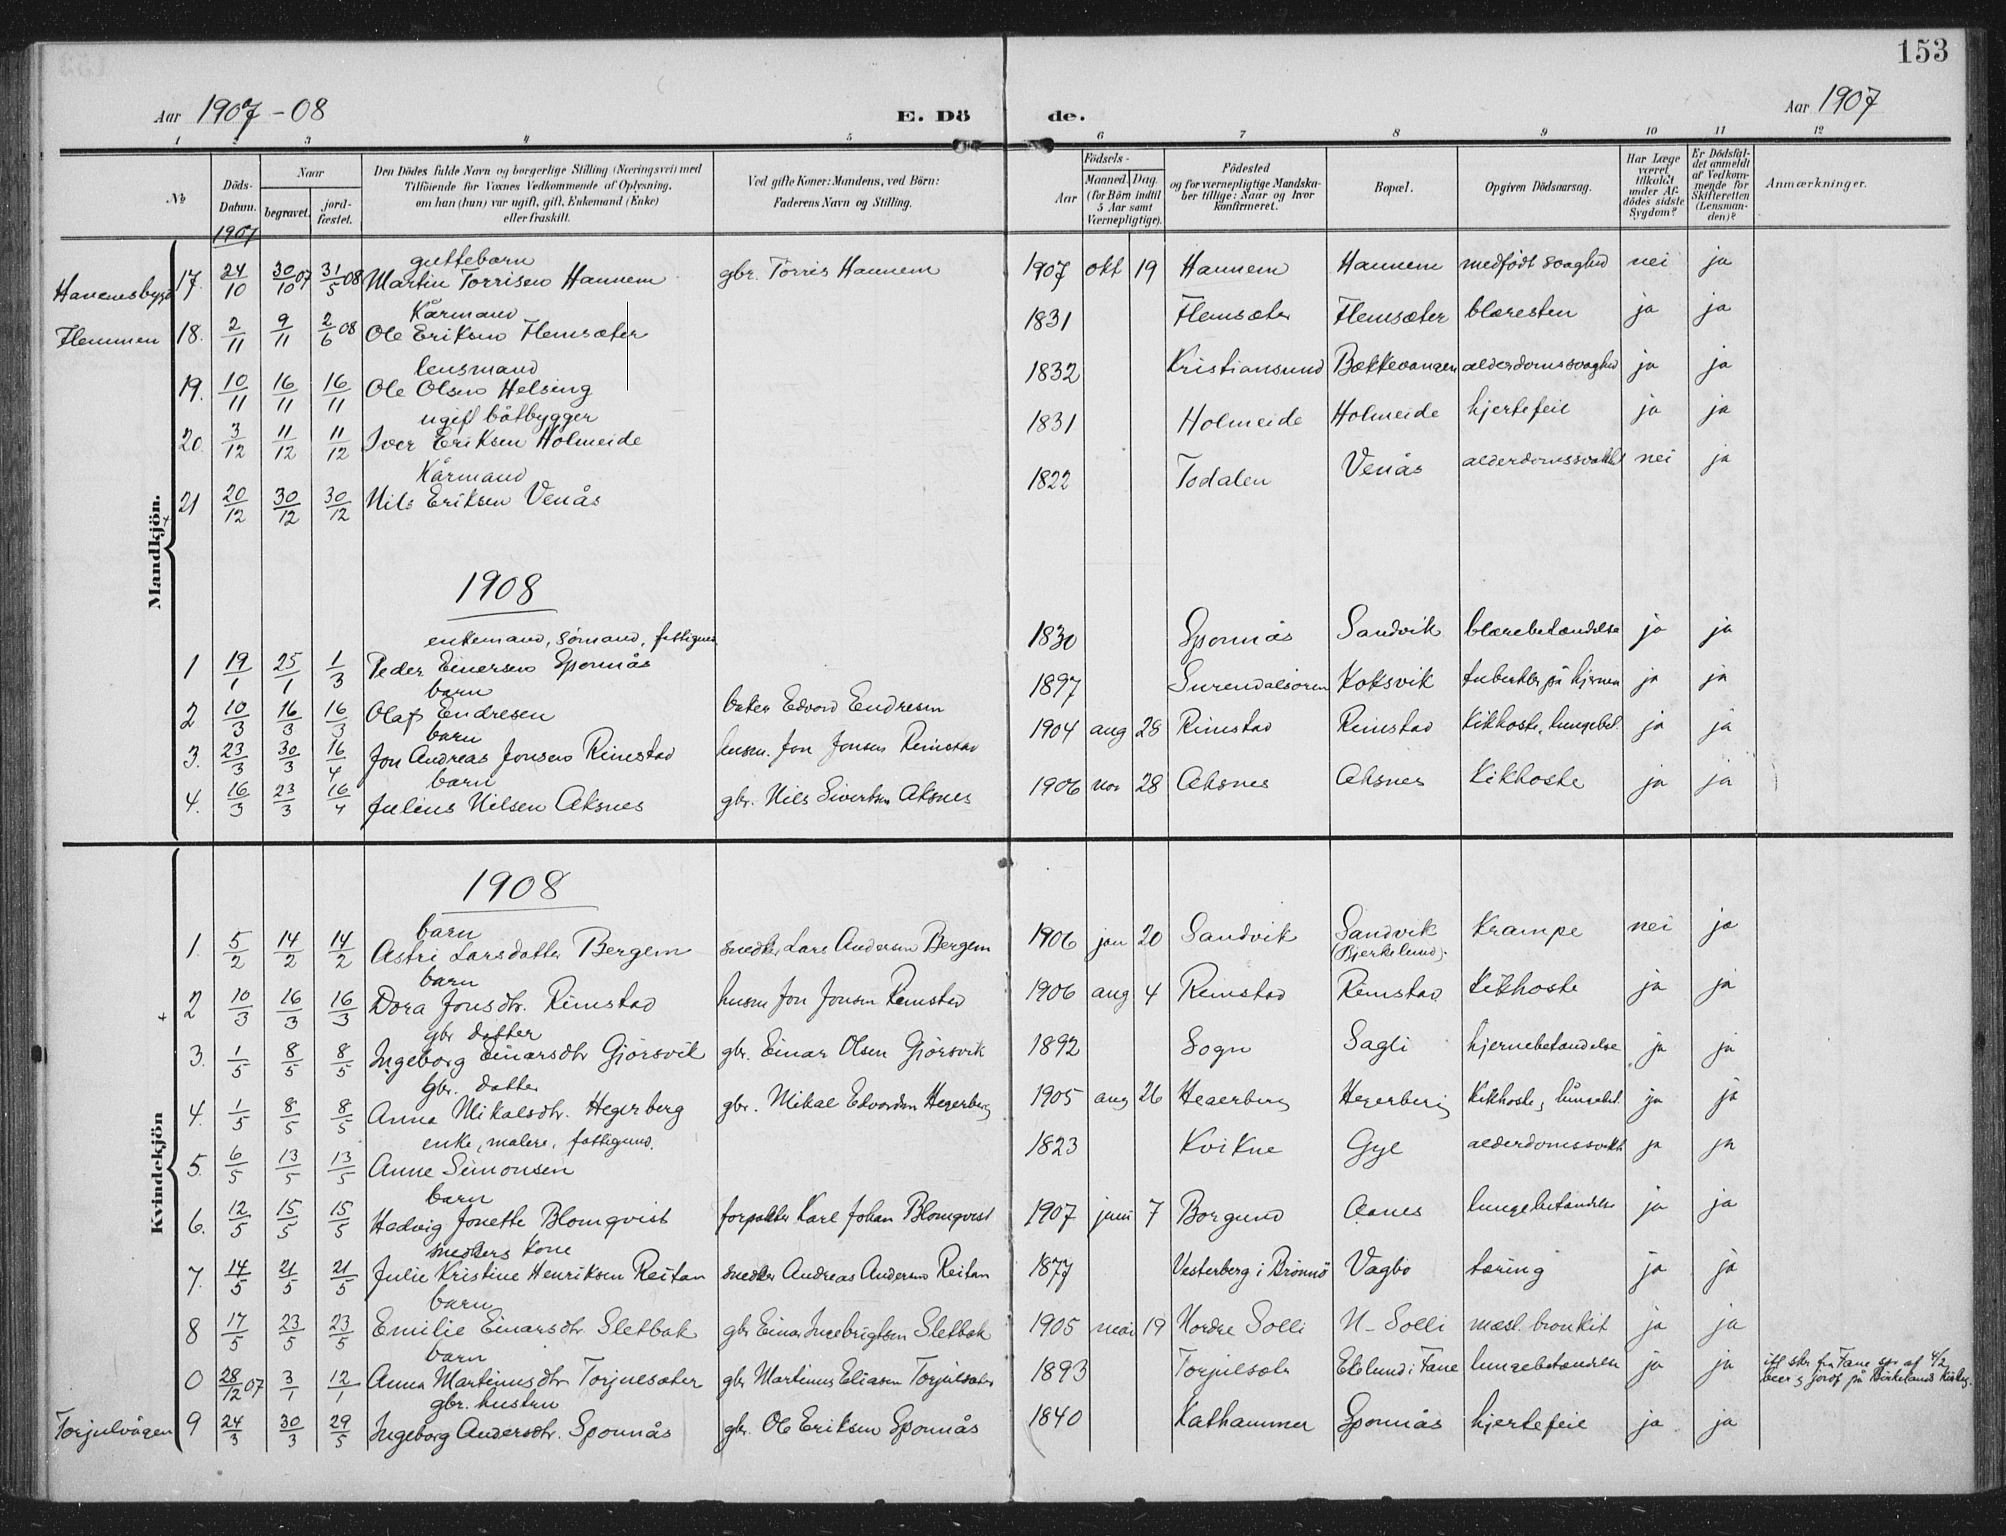 153
Aar 1907-08 E. Dö de. Aar 1907
1 2 3 4 5 6 7 8 9 10 11 12
№ Döds-Datum. Naar begravet. jord-fæstet. Den Dödes fulde Navn og borgerlige Stilling (Næringsvei) med Tilföiende for Voxnes Vedkommende af Oplysning, om han (hun) var ugift, gift, Enkemand (Enke) eller fraskilt. Ved gifte Koner: Mandens, ved Börn: Faderens Navn og Stilling. Födsels- Aar Maaned. Dag. (for Börn indtil 5 Aar samt Værnepligtige). Födested og for værnepligtige Mandskaber tillige: Naar og hvor konfirmeret. Bopæl. Opgiven Dödsaarsag. Har Læge været tilkaldt under Afdödes sidste Sygdom? Er Dödsfaldet anmeldt af Vedkommende for Skifteretten (Lensmanden)? Anmærkninger.
1907
Mandkjön.
guttebarn
17. 24/10 30/10 07 31/5 08 Martin Torrisen Hannem gbr. Torris Hannem 1907 okt 19 Hannem Hannem medfödt svaghed nei ja
Kårmand
Flemmen 18. 2/11 9/11 2/6 08 Ole Eriksen Flemsæter 1831 Flemsæter Flemsæter blæresten ja ja
lensmand
19. 10/11 16/11 16/11 Ole Olsen Helsing 1832 Kristiansund Bækkevangen alderdomssvaghed ja ja
ugift båtbygger
20. 3/12 11/12 11/12 Iver Eriksen Holmeide 1831 Holmeide Holmeide hjertefeil ja ja
Kårmand
21 20/12 30/12 30/12 Nils Eriksen Venås 1822 Todalen Venås nei ja
1908
enkemand, sömand,
1 19/1 25/1 1/3 Peder Einersen Sponnås 1830 Sponnås Sandvik blærebetændelse ja ja
barn
2 10/3 16/3 16/3 Olaf Endresen Edvard Endresen 1897 Surendalsören Koksvik tuberkler på hjernen ja ja
barn
3. 23/3 30/3 16/4 Jon Andreas Jonsen Rimstad husm. Jon Jonsen Rimstad 1904 aug 28 Rimstad Rimstad Kikhoste, lungebet. ja ja
barn
4. 16/3 23/3 16/4 Julius Nilsen Aksnes gbr. Nils Sivertsen Aksnes 1906 nov 28 Aksnes Aksnes Kikhoste ja ja
Kvindekjön
1908
barn
1. 5/2 14/2 14/2 Astri Larsdatter Bergem snedker Lars Andersen Bergem 1906 jan 20 Sandvik Sandvik (Bjerkelund). Krampe nei ja
barn
2 10/3 16/3 16/3 Dora Jonsdtr. Rimstad husm Jon Jonsen Rimstad 1906 aug 4 Rimstad Rimstad Kikhoste ja ja
gbr datter
3. 1/5 8/5 8/5 Ingeborg Einarsdtr Gjörsvik gbr. Einar Olsen Gjörsvik 1892 Sogn Sagli hjernebetændelse ja ja
gbr. datter
4. 1/5 8/5 8/5 Anna Mikalsdtr. Hegerberg gbr. Mikal Edvardsen Hegerberg 1905 aug 26 Hegerberg Hegerberg Kikhoste, lungebet. ja ja
enke, malere, fattigund.
5. 6/5 13/5 13/5 Anne Simonsen 1823 Kvikne Gyl ja ja
barn
6. 12/5 15/5 15/5 Hedvig Jonette Blomqvist forpakter Karl Johan Blomqvist 1907 juni 7 Borgund Aanes lungebetændelse ja ja
snedkers kone
7. 14/5 21/5 21/5 Julie Kristine Henriksen Reitan snedker Andreas Andersen Reitan 1877 Vesterberg i Brönnö Vågbo tæring ja ja
barn
8 17/5 23/5 23/5 Emilie Einarsdtr Sletbak gbr Einar Ingebrigtsen Sletbak 1905 mai 19 Nordre Solli N-Solli mæsl. bronkit ja ja
barn
0 28/12 07 3/1 12/1 Anna Martinusdtr Torjulsæter gbr Martinus Eliasen Torjulsæter 1893 Torjulsætr Ekelund i Fane lungebetændelse ja ja
gbr. hustru
Torjulvågen 9 24/3 30/3 29/5 Ingeborg Andersdtr. Sponnås gbr. Ole Eriksen Sponnås 1840 Kathammer Sponnås hjertefeil ja ja